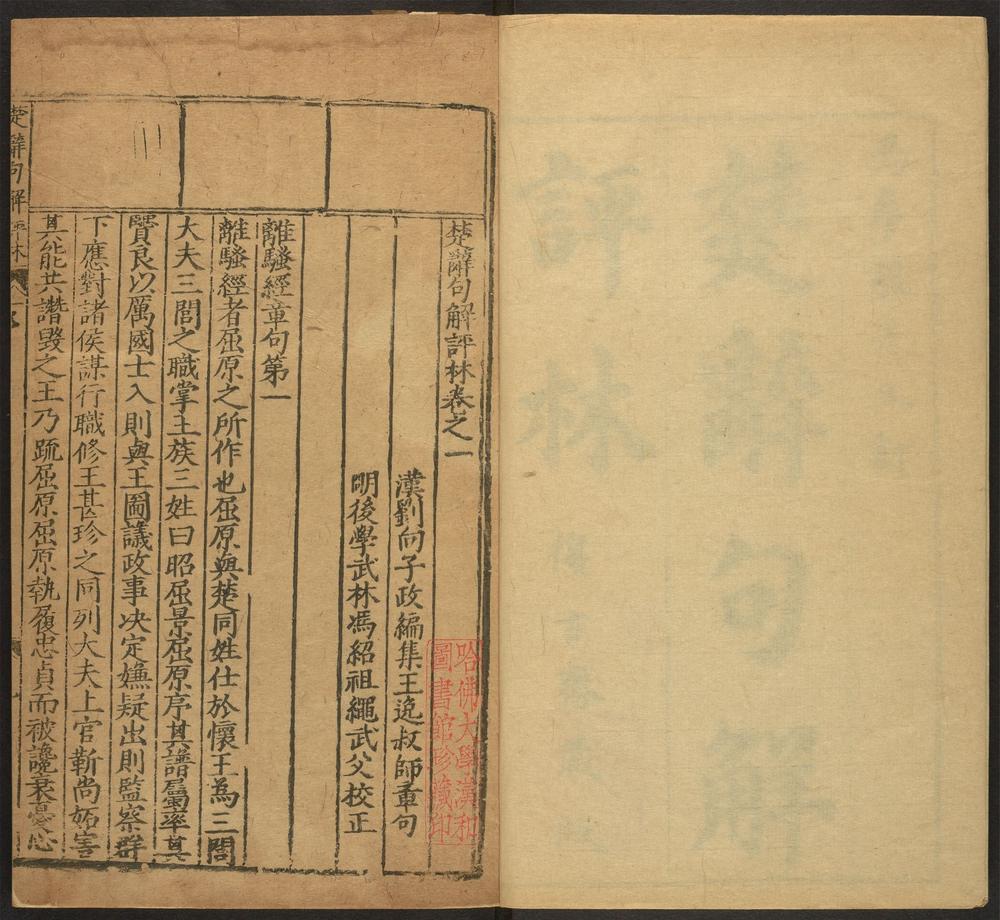 楚辭句解評林卷之一
漢劉向子政編集王逸叔師章句
明後學武林馮紹祖繩武父校正
離騷經章句第一
離騷經者屈原之所作也屈原與楚同姓仕於懷王為三閭
大夫三閭之職掌王族三姓曰昭屈景屈原序其譜屬率其
賢良以厲國士入則與王圖議政事决定嫌疑出則監察群
下應對諸侯謀行職修王甚珍之同列大夫上官靳尚妬害
其能共譖毀之王乃疏屈原屈原執履忠貞而被讒衺憂心
楚辭句解評林
哈佛大學漢和
圖書館珍藏印
楚辭句解
評林